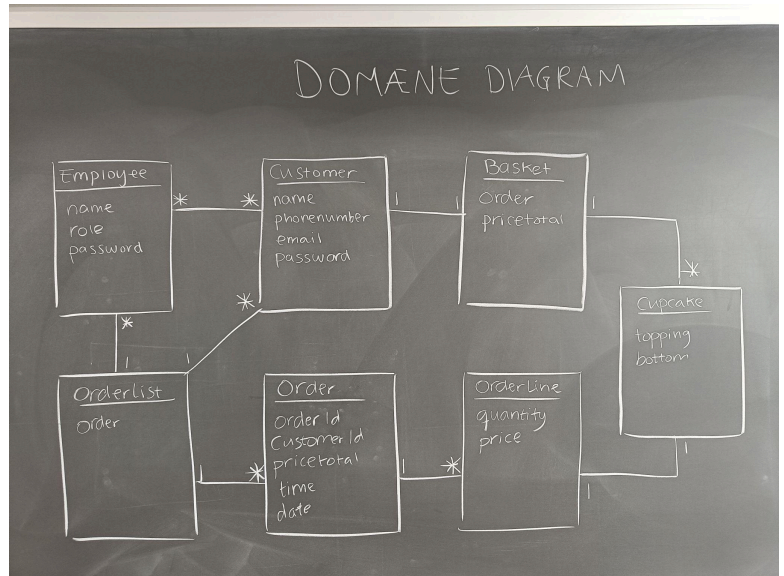 DOMÆNE DIAGRAM
Employee
name
role
password
*
*
Customer
name
phonenumber
email
password
1
1
Basket
Order
pricetotal
1
*
Cupcake
topping
bottom
*
1
*
1
OrderList
Order
1
*
Order
Order Id
Customer Id
pricetotal
time
date
1
*
OrderLine
quantity
price
1
1